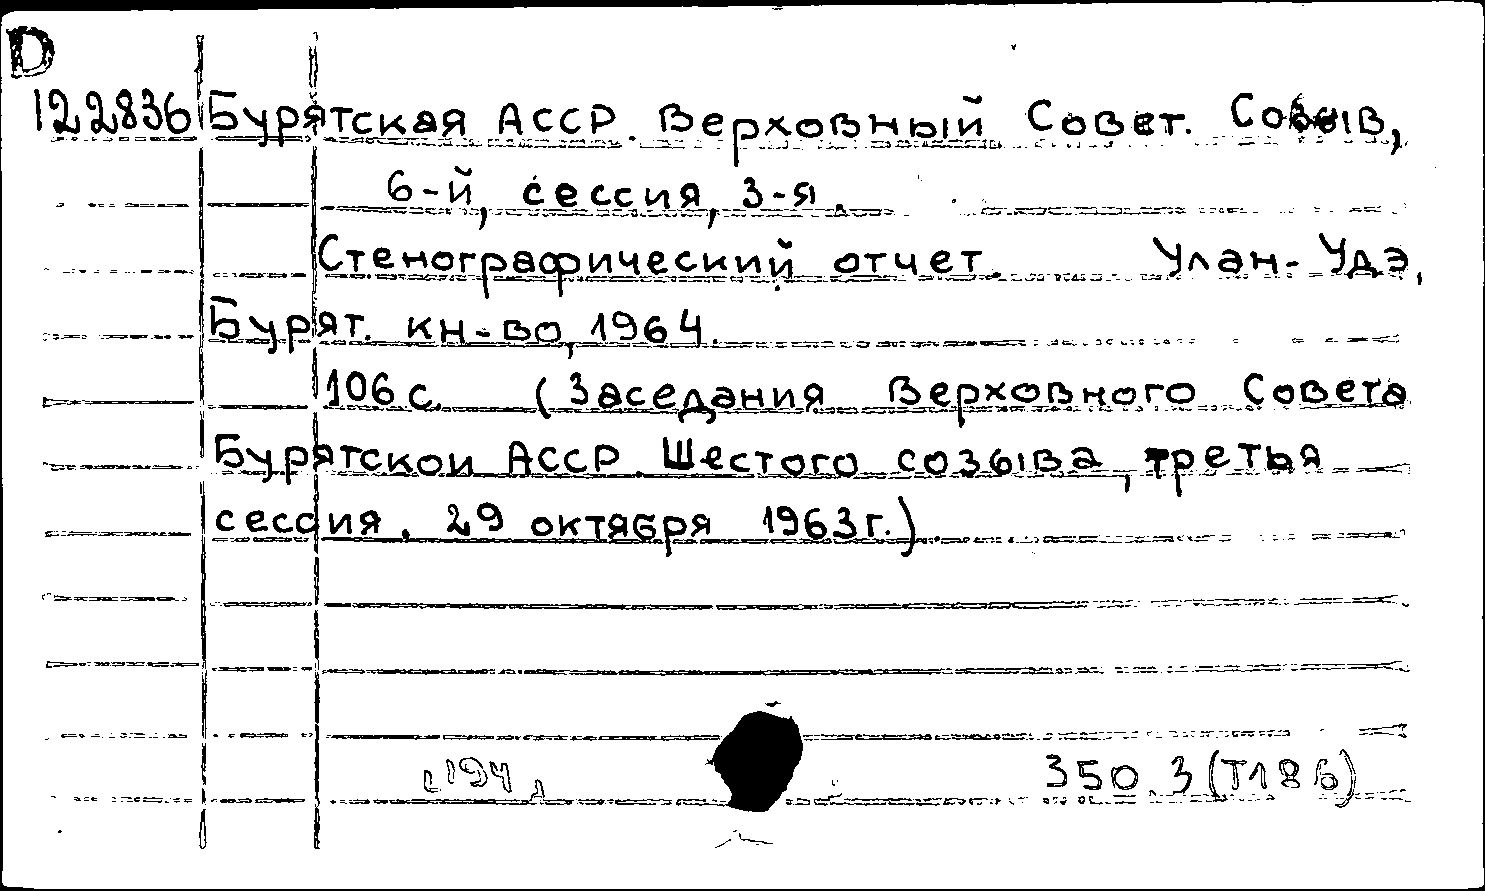 D
122836 Бурятская АССР. Верховный Совет. Созыв,
6-й, сессия, 3-я.
Стенографический отчет. Улан-Удэ,
Бурят. кн-во, 1964.
106 с. (Заседания Верховного Совета
Бурятской АССР. Шестого созыва, третья
сессия. 29 октября 1963 г.)
350.3(Т186)